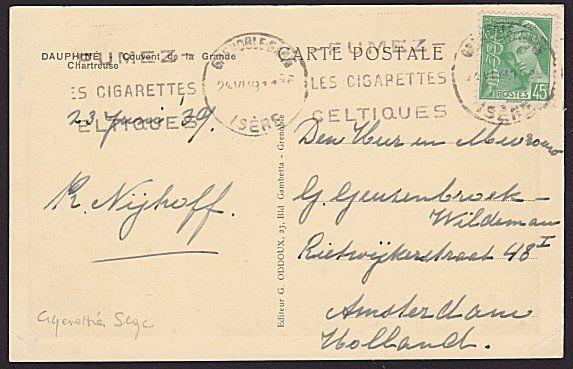 DAUPHINÉ - Couvent de la Grande
Chartreuse
CARTE POSTALE
FUMEZ
LES CIGARETTES
CELTIQUES
GRENOBLE GARE
ISÈRE
FUMEZ
LES CIGARETTES
CELTIQUES
ISÈRE
POSTES 45
23 Juni '39.
R. Nijhoff.
Editeur G. ODDOUX, 23, Bld Gambetta - Grenoble
Den Heer en Mevrouw
G Geusenbroek -
Wildeman
Rietwijkerstraat 48 I
Amsterdam
Holland.